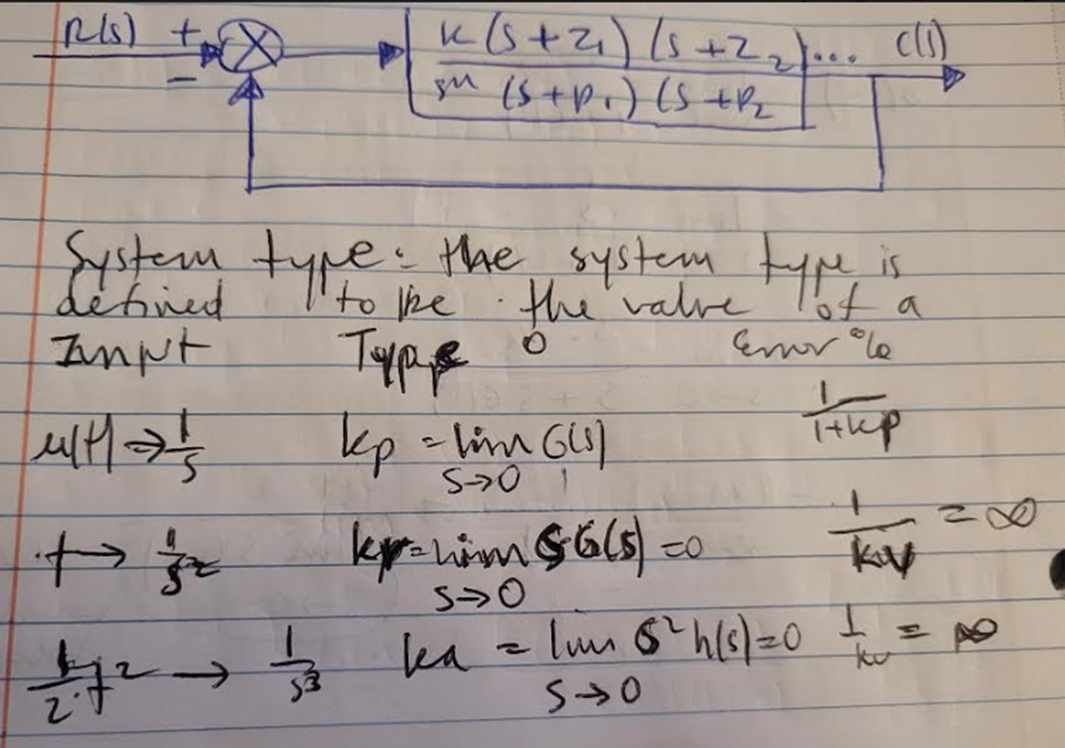 R(s) + C(s)
−
K(s+z₁)(s+z₂)...
sᵐ(s+p₁)(s+p₂
System type: the system type is
defined to be the value of a
Input Type 0 Error %
u(t) ⇒ 1/s kp = lim G(s) 1/(1+kp)
s→0
t → 1/s² kv = lim sG(s) = 0 1/kv = ∞
s→0
1/2 t² → 1/s³ ka = lim s² h(s) = 0 1/kv = ∞
s→0